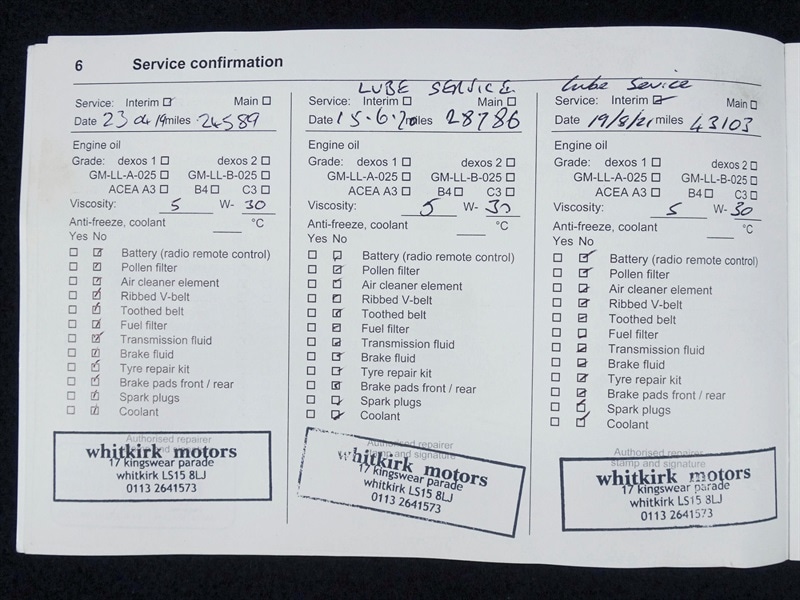 6 Service confirmation
Service: Interim Main
Date 23 04 19 miles 24589
Engine oil
Grade: dexos 1 dexos 2
GM-LL-A-025 GM-LL-B-025
ACEA A3 B4 C3
Viscosity: 5 W- 30
Anti-freeze, coolant °C
Yes No
Battery (radio remote control)
Pollen filter
Air cleaner element
Ribbed V-belt
Toothed belt
Fuel filter
Transmission fluid
Brake fluid
Tyre repair kit
Brake pads front / rear
Spark plugs
Coolant
Authorised repairer
whitkirk motors
17 kingswear parade
whitkirk LS15 8LJ
0113 2641573
LUBE SERVICE
Service: Interim Main
Date 15.6.20 miles 28786
Engine oil
Grade: dexos 1 dexos 2
GM-LL-A-025 GM-LL-B-025
ACEA A3 B4 C3
Viscosity: 5 W- 30
Anti-freeze, coolant °C
Yes No
Battery (radio remote control)
Pollen filter
Air cleaner element
Ribbed V-belt
Toothed belt
Fuel filter
Transmission fluid
Brake fluid
Tyre repair kit
Brake pads front / rear
Spark plugs
Coolant
Authorised repairer
stamp and signature
whitkirk motors
17 kingswear parade
whitkirk LS15 8LJ
0113 2641573
Lube Sevice
Service: Interim Main
Date 19/8/21 miles 43103
Engine oil
Grade: dexos 1 dexos 2
GM-LL-A-025 GM-LL-B-025
ACEA A3 B4 C3
Viscosity: 5 W- 30
Anti-freeze, coolant °C
Yes No
Battery (radio remote control)
Pollen filter
Air cleaner element
Ribbed V-belt
Toothed belt
Fuel filter
Transmission fluid
Brake fluid
Tyre repair kit
Brake pads front / rear
Spark plugs
Coolant
Authorised repairer
stamp and signature
whitkirk motors
17 kingswear parade
whitkirk LS15 8LJ
0113 2641573